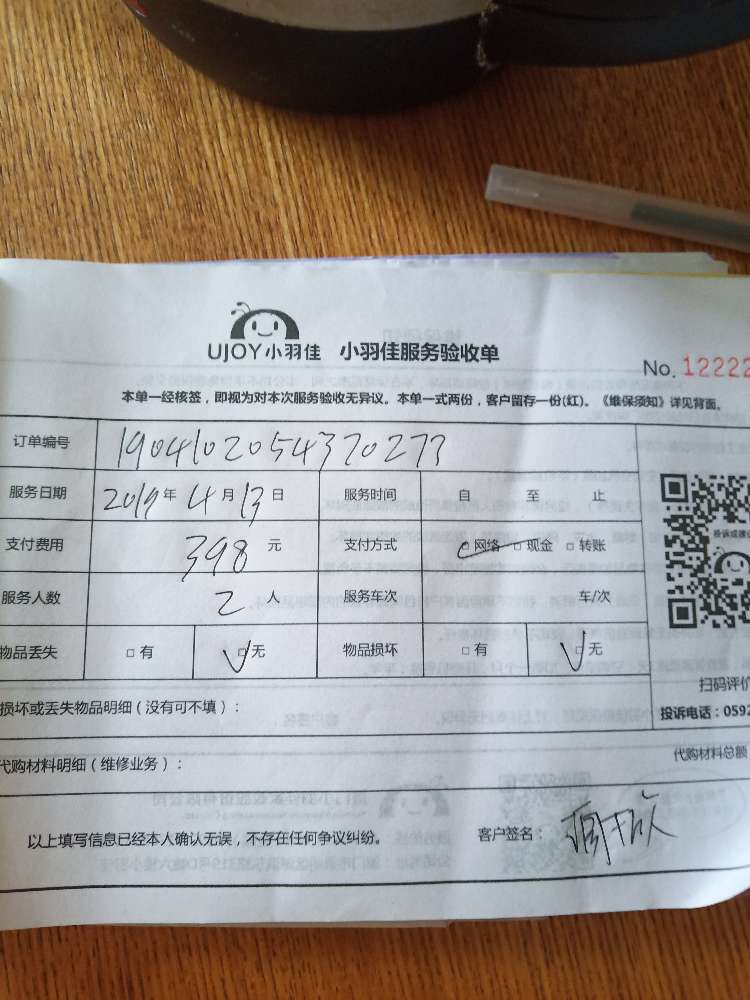 UJOY小羽佳 小羽佳服务验收单
No. 12222
本单一经核签，即视为对本次服务验收无异议。本单一式两份，客户留存一份(红)。《维保须知》详见背面。
订单编号 1904102054370273
服务日期 2019年 4月 13日 服务时间 自 至 止
支付费用 398 元 支付方式 □网络 □现金 □转账
服务人数 2 人 服务车次 车/次
物品丢失 □有 □无 物品损坏 □有 □无
扫码评价
损坏或丢失物品明细（没有可不填）：
投诉电话：0592
代购材料明细（维修业务）：
代购材料总额
以上填写信息已经本人确认无误，不存在任何争议纠纷。 客户签名：